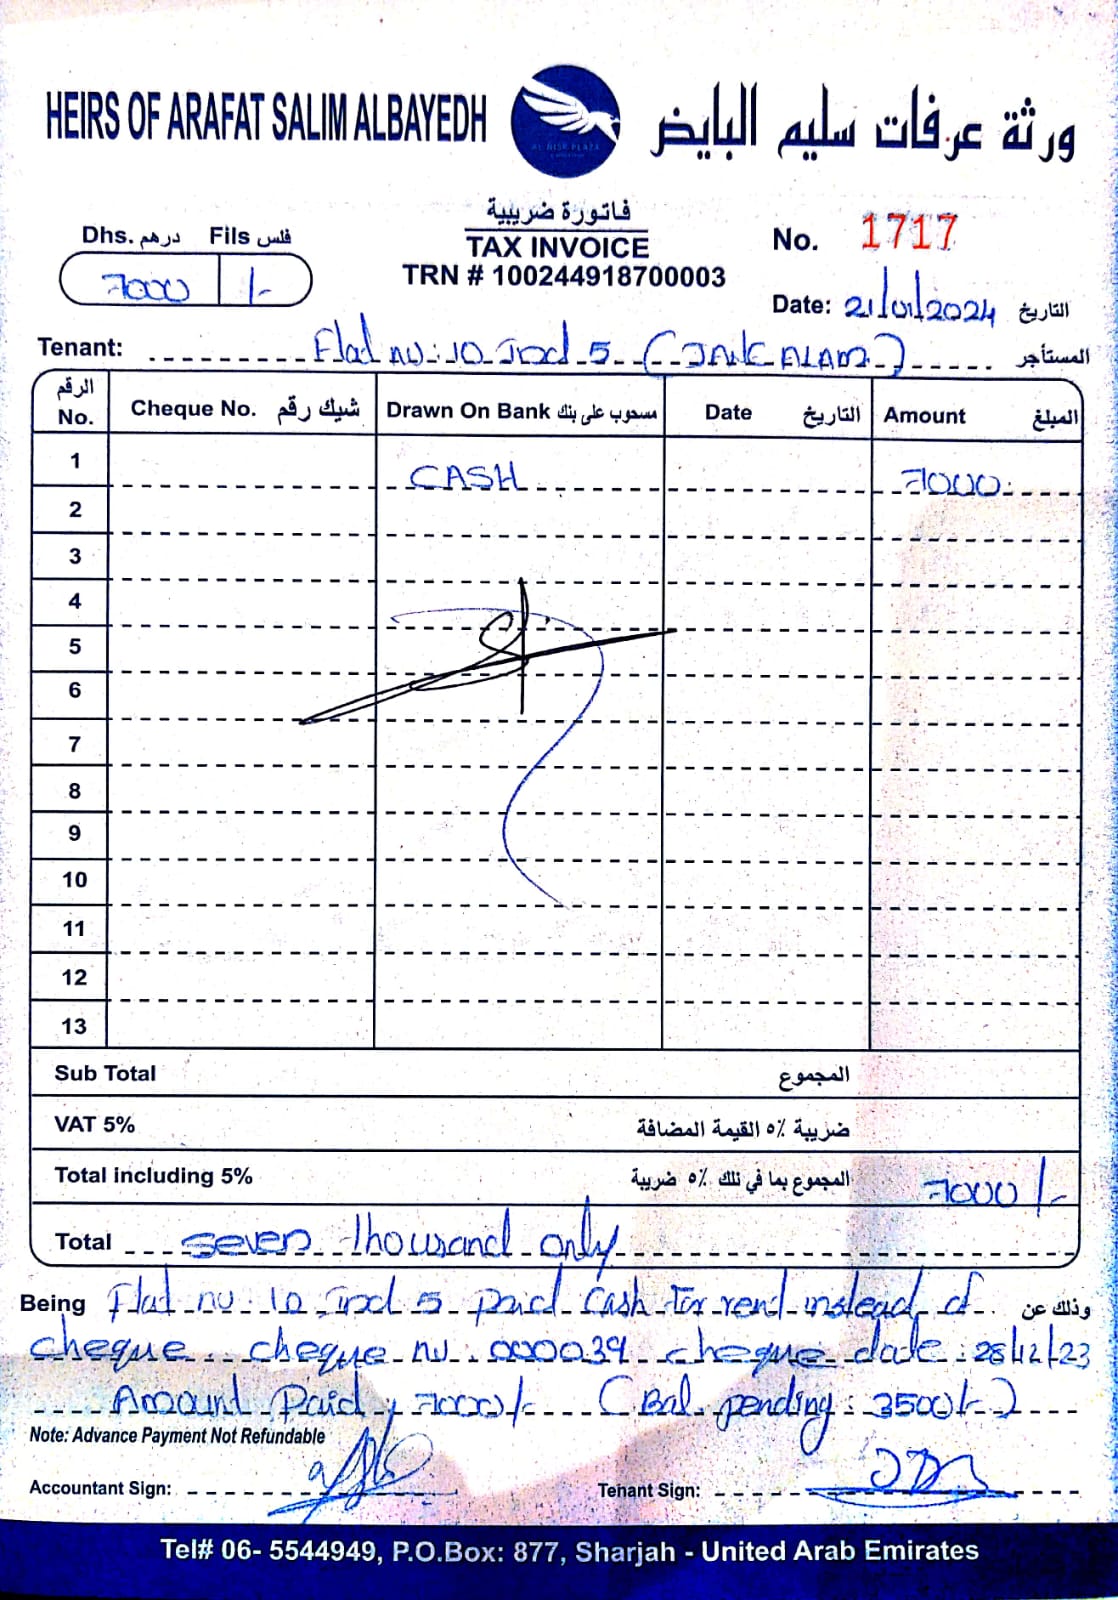 HEIRS OF ARAFAT SALIM ALBAYEDH
ورثة عرفات سليم البايض
AL NISR PLAZA
Dhs. درهم Fils فلس
7000 /-
فاتورة ضريبية
TAX INVOICE
TRN # 100244918700003
No. 1717
Date: 21/01/2024 التاريخ
Tenant: Flat no: 10 Ind 5 ( ALAM ) المستأجر
الرقم No. Cheque No. شيك رقم Drawn On Bank مسحوب على بنك Date التاريخ Amount المبلغ
1 CASH 7000
2
3
4
5
6
7
8
9
10
11
12
13
Sub Total المجموع
VAT 5% ضريبة ٥٪ القيمة المضافة
Total including 5% المجموع بما في ذلك ٥٪ ضريبة 7000/-
Total seven thousand only
Being Flat no: 10 Ind 5 paid cash for rent instead of وذلك عن
cheque. cheque no: 000039 cheque date: 28/12/23
Amount Paid, 7000/- ( Bal. pending: 3500/-)
Note: Advance Payment Not Refundable
Accountant Sign:
Tenant Sign:
Tel# 06- 5544949, P.O.Box: 877, Sharjah - United Arab Emirates